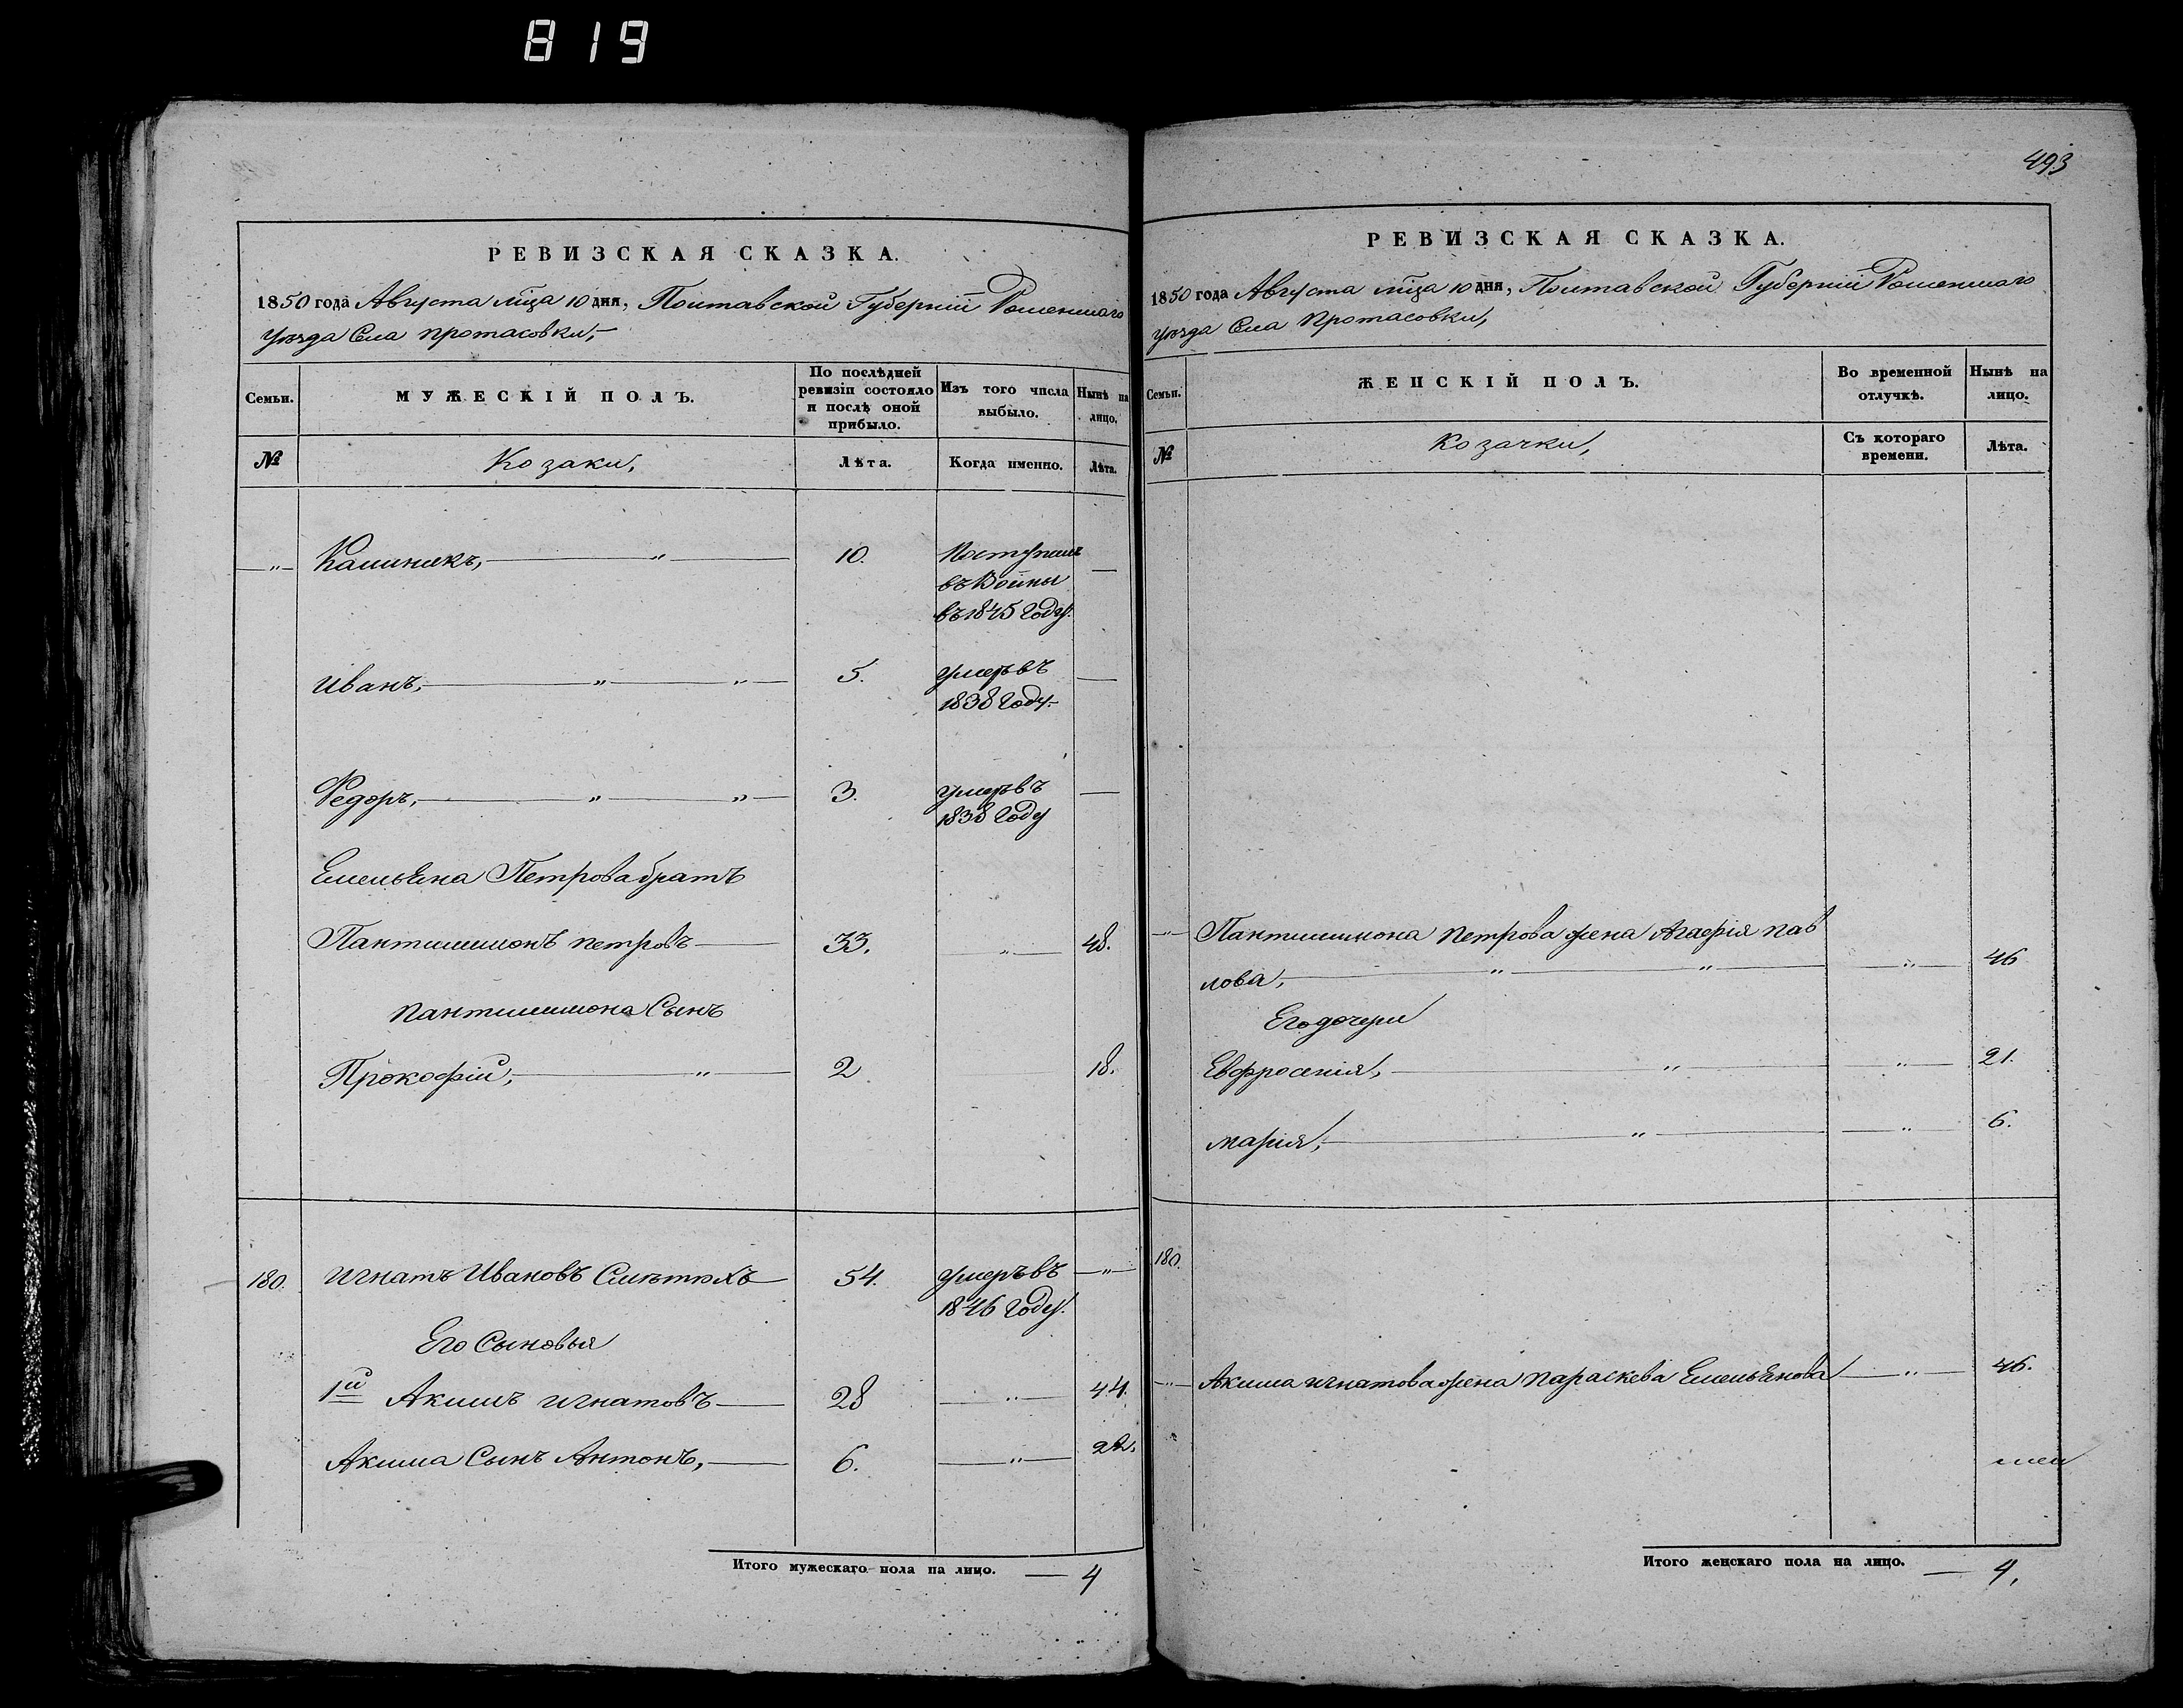 819
РЕВИЗСКАЯ СКАЗКА.
1850 года Августа мца 10 дня, Полтавской Губерніи Роменскаго
уѣзда Села Протасовки,
Семьи.
МУЖЕСКІЙ ПОЛЪ.
По послѣдней ревизіи состояло и послѣ оной прибыло.
Изъ того числа выбыло.
Нынѣ на лицо.
№
Козаки,
Лѣта.
Когда именно.
Лѣта.
Калиникъ, 10. Поступил
въ Воины
въ 1845 году.
Иванъ, 5. умеръ въ
1838 году.
Федоръ, 3. умеръ въ
1838 году
Емельяна Петрова братъ
Пантилимонъ Петровъ 33. 48.
Пантилимона Сынъ
Прокофій, 2 18.
180. Игнатъ Ивановъ 54. умеръ въ
1846 году.
Его Сыновья
1й Акимъ Игнатовъ 28 44.
Акима Сынъ Антонъ, 6. 22.
Итого мужескаго пола на лицо. 4
493
РЕВИЗСКАЯ СКАЗКА.
1850 года Августа мца 10 дня, Полтавской Губерніи Роменскаго
уѣзда Села Протасовки,
Семьи.
ЖЕНСКІЙ ПОЛЪ.
Во временной отлучкѣ.
Нынѣ на лицо.
№
Козачки,
Съ котораго времени.
Лѣта.
Пантилимона Петрова жена Агафія Пав
лова, 46
Его дочери
Евфросенія, 21.
Марія, 6.
180.
Акима Игнатова жена Параскева Емельянова 46.
Итого женскаго пола на лицо. 4,